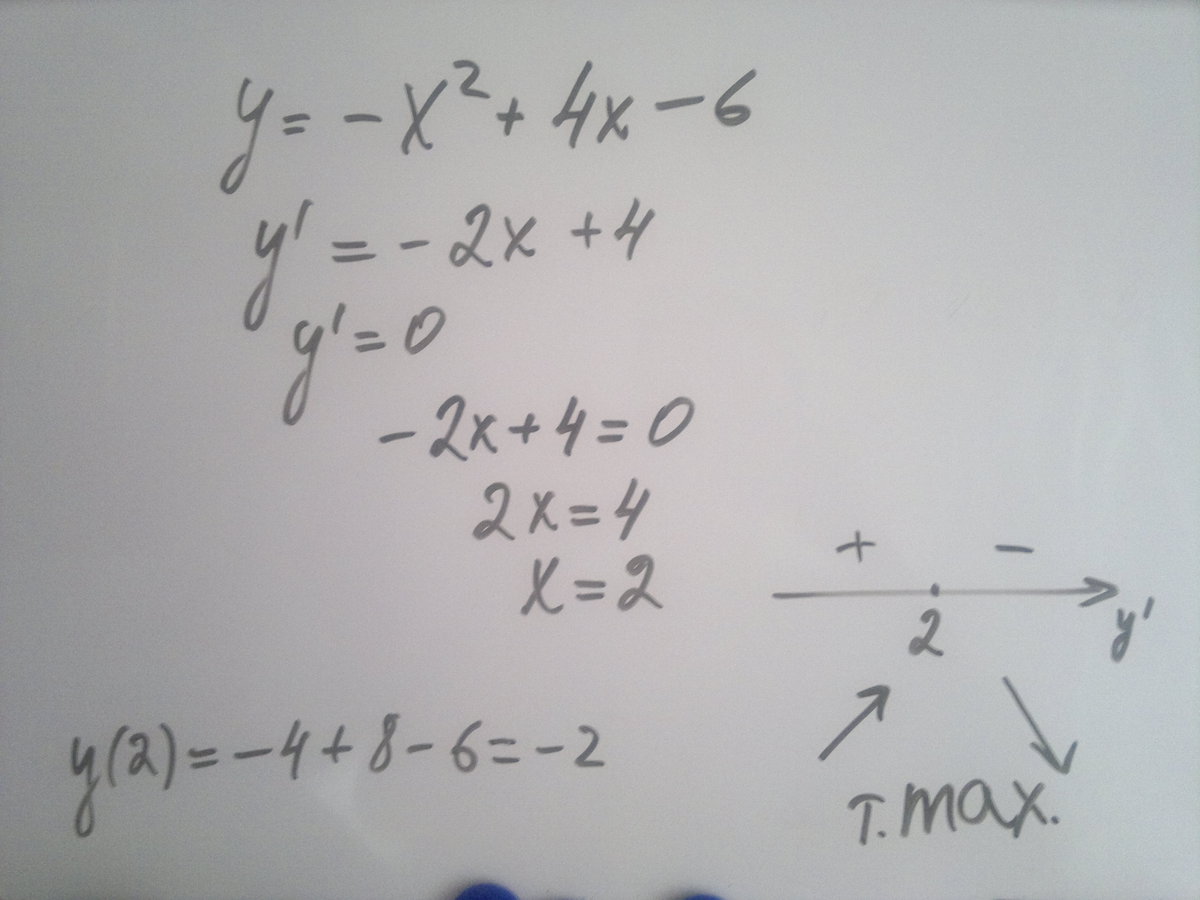 y = -x² + 4x - 6
y' = -2x + 4
y' = 0
-2x + 4 = 0
2x = 4
x = 2
+ -
2 y'
y(2) = -4 + 8 - 6 = -2
т. max.